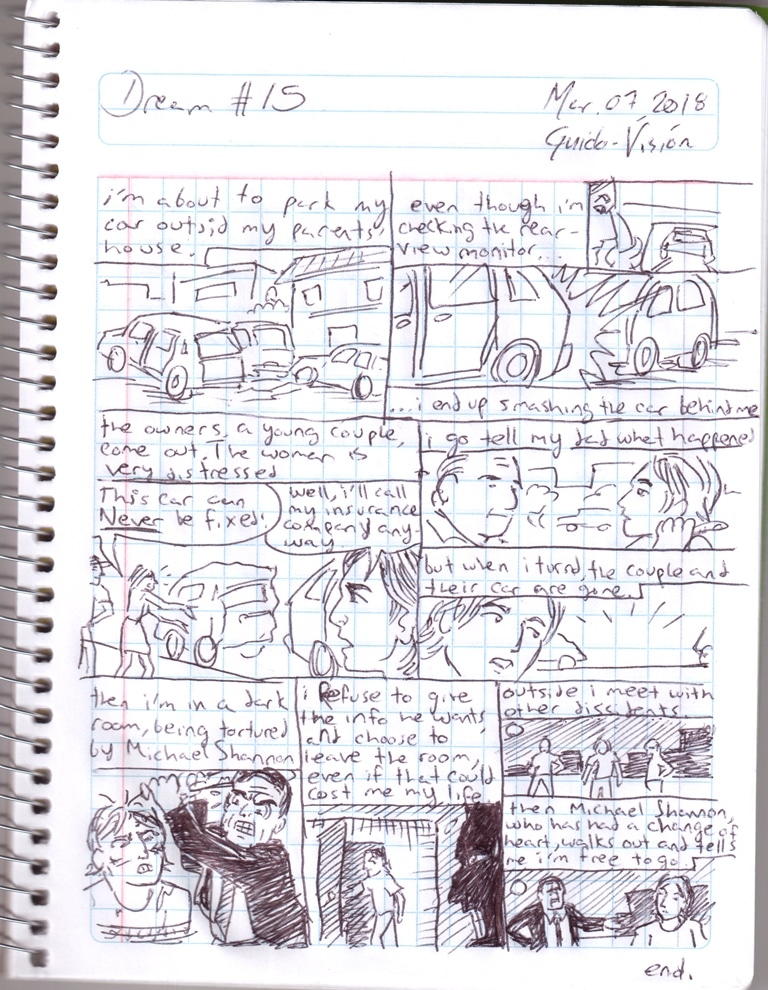 Dream #15
Mar. 07 2018
Guido-Visión
i'm about to park my
car outsid my parents'
house.
even though i'm
checking the rear-
view monitor...
...i end up smashing the car behind me
the owners, a young couple,
come out. The woman is
very distressed
This car can
Never be fixed!
well, i'll call
my insurance
company any-
way
i go tell my dad what happened
but when i turnd, the couple and
their car are gone.
then i'm in a dark
room, being tortured
by Michael Shannon
i Refuse to give
the info he wants
and choose to
leave the room,
even if that could
cost me my life
outside i meet with
other dissidents
then Michael Shannon,
who has had a change of
heart, walks out and tells
me i'm free to go.
end.